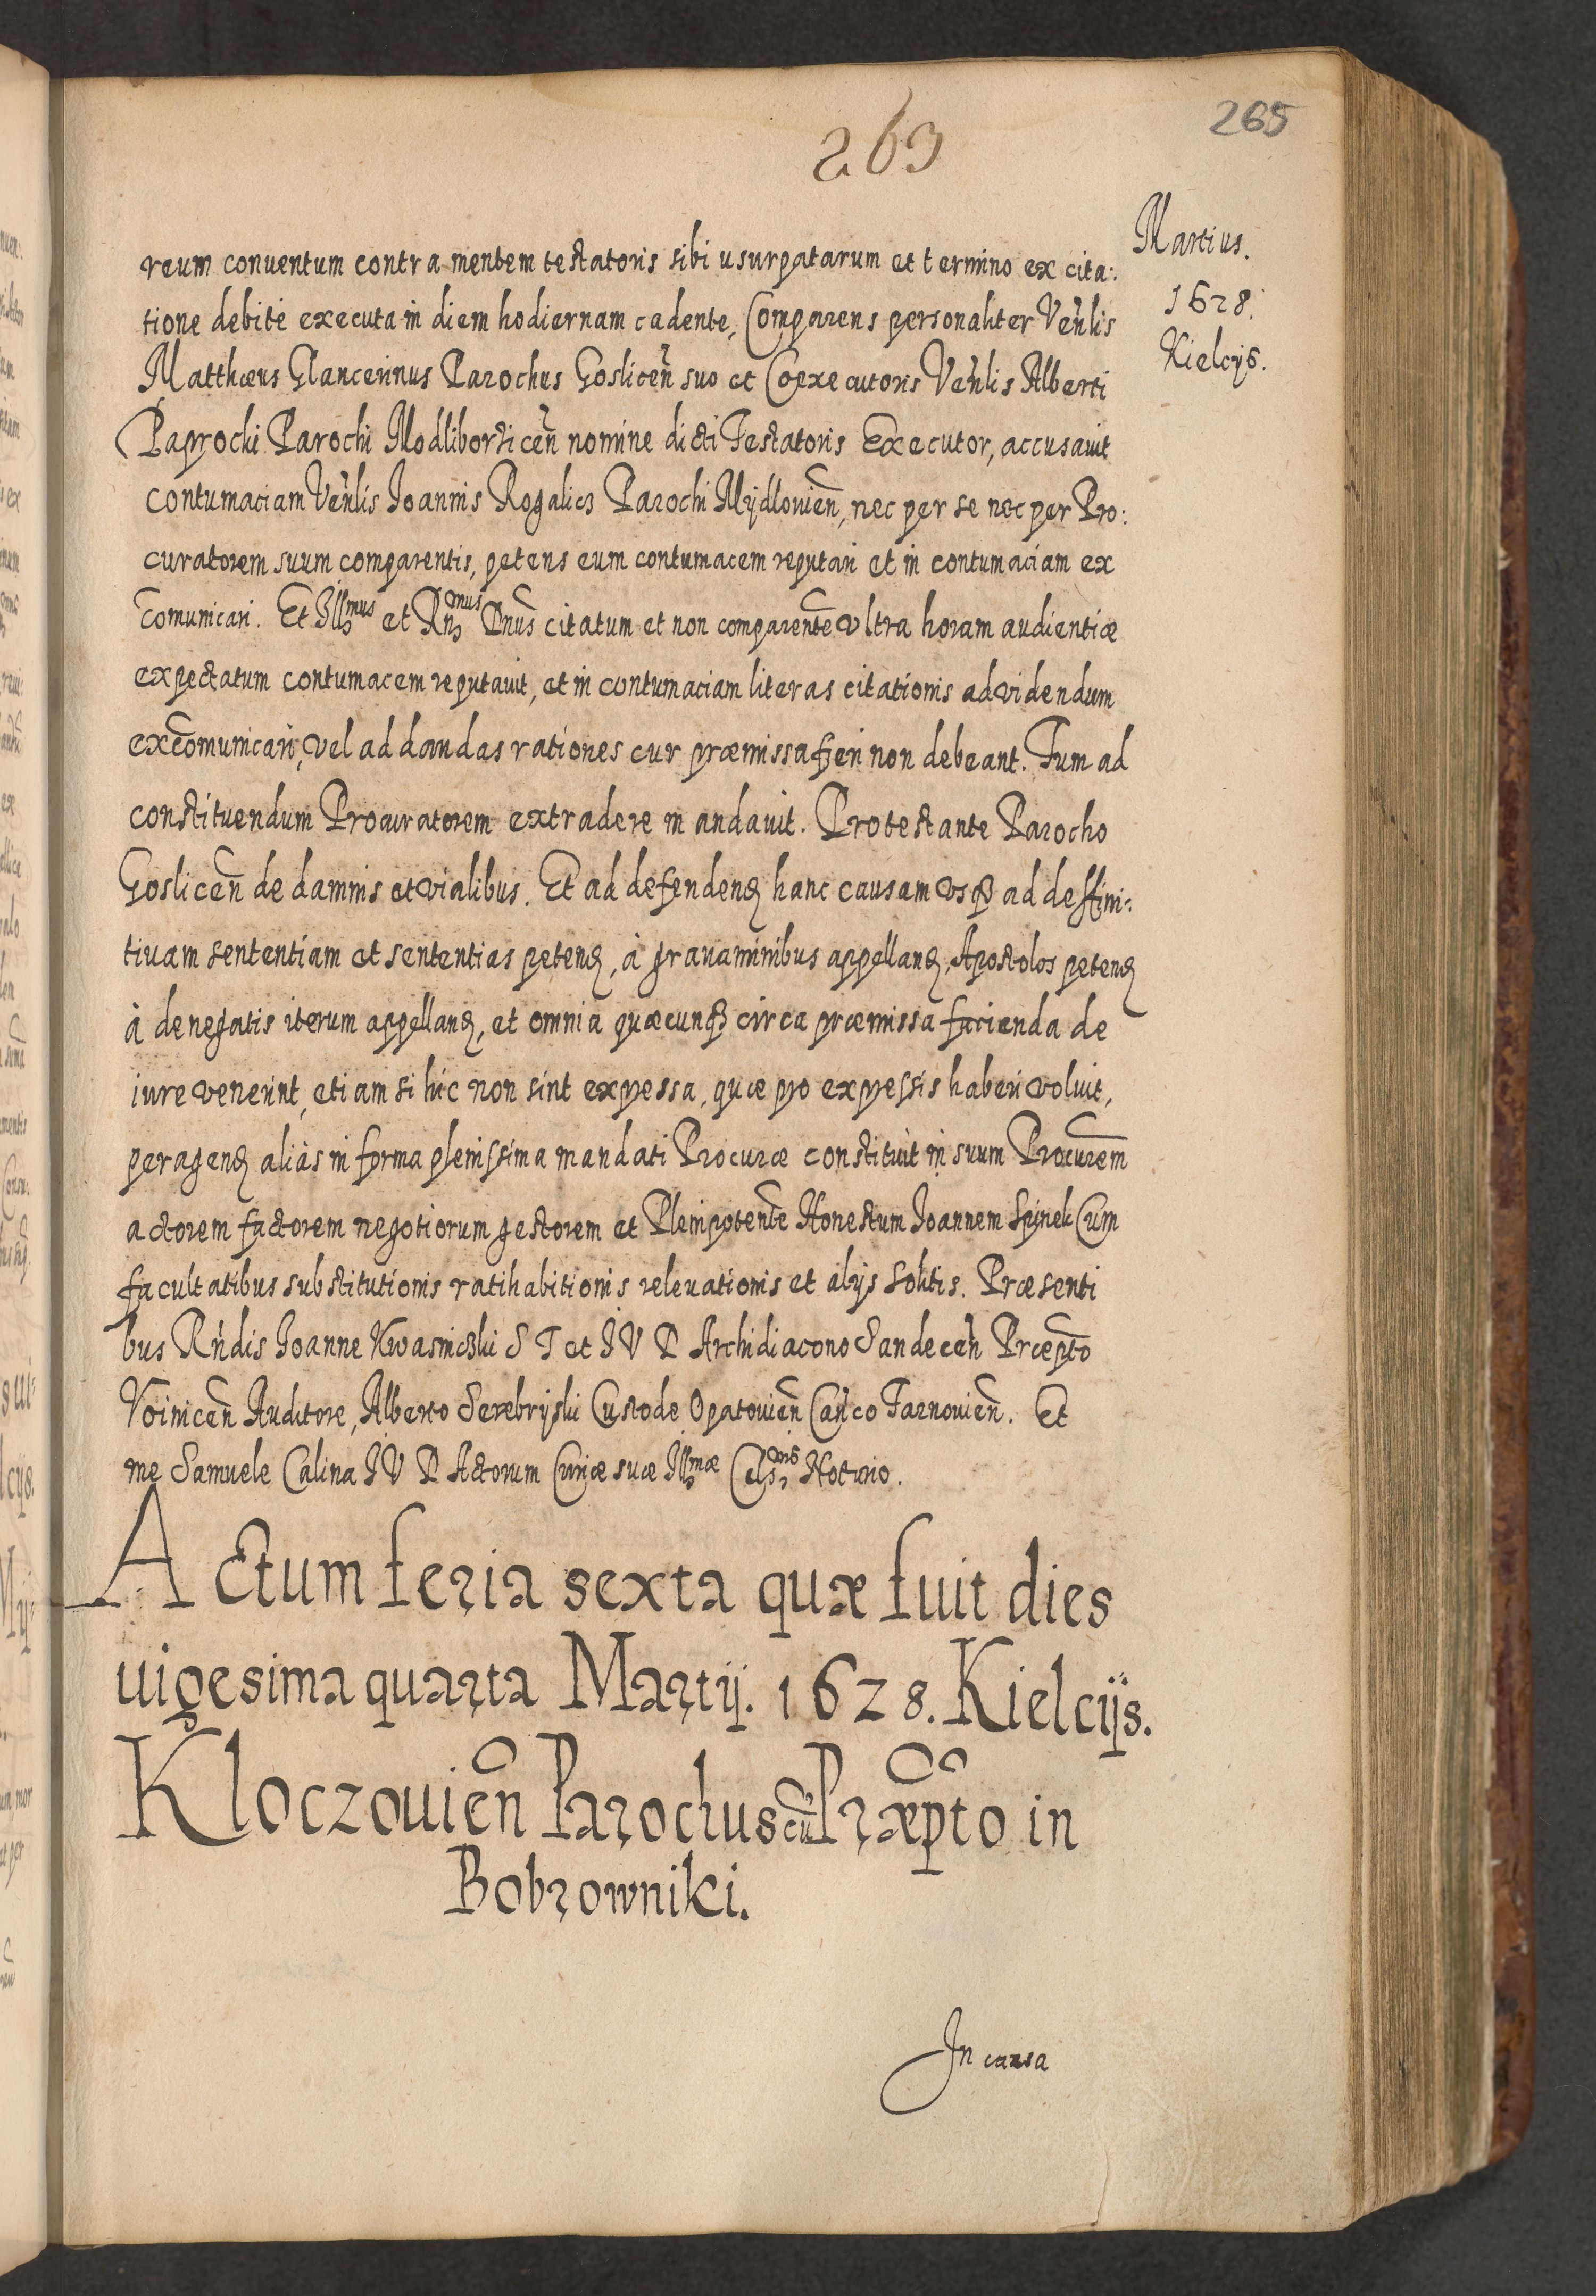 263
265
Martius.
1628.
Kielcijs.
reum conuentum contra mentem testatoris sibi usurpatarum et termino ex cita:
tione debite executa in diem hodiernam cadente, Comparens personaliter Venlis
Matthæus Glancerinus Parochus Goslicen suo et Coexecutoris Venlis Alberti
Paprocki Parochi Modliborzicen nomine dicti Testatoris Executor, accusauit
contumaciam Venlis Joannis Rogalicz Parochi Mijdlouien, nec per se nec per Pro:
curatorem suum comparentis, petens eum contumacem reputari et in contumaciam ex
comunicari. Et Illmus et Rnmus Dnus citatum et non comparente vltra horam audientiæ
expectatum contumacem reputauit, et in contumaciam literas citationis ad videndum
excomunicari, vel ad dandas rationes cur præmissa fieri non debeant. Tum ad
constituendum Procuratorem extradere mandauit. Protestante Parocho
Goslicen de damnis et vialibus. Et ad defendend hanc causam vsq ad deffini:
tiuam sententiam et sententias petend, à grauaminibus appelland, Apostolos petend
à denegatis iterum appelland, et omnia quæcunq circa præmissa facienda de
iure venerint, etiam si hic non sint expressa, quæ pro expressis haberi voluit,
peragend aliàs in forma plenissima mandati Procuræ constituit in suum Procurem
actorem factorem negotiorum gestorem et Plenipotente Honestum Joannem Spinek Cum
facultatibus substitutionis ratihabitionis releuationis et alijs solitis. Præsenti
bus Rndis Joanne Kwasniczki S T et I V D Archidiacono Sandecen Præpto
Voinicen Auditore, Alberto Serebrijski Custode Opatouien Canco Tarnouien. Et
me Samuele Calina I V D Actorum Curiæ suæ Illmæ Celsnis Notario.
Actum feria sexta quæ fuit dies
uigesima quarta Martij. 1628. Kielcijs.
Kloczouien Parochus cu Præpto in
Bobrowniki.
In causa